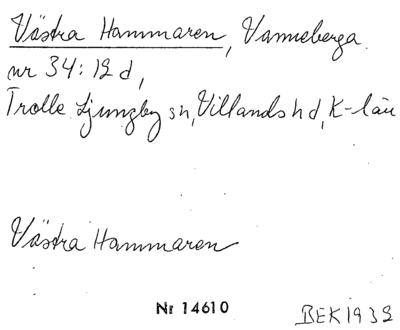 Västra Hammaren, Vanneberga
nr 34:12 d,
Trolle Ljungby sn, Villands hd, K-län
Västra Hammaren
Nr 14610
BEK 1932